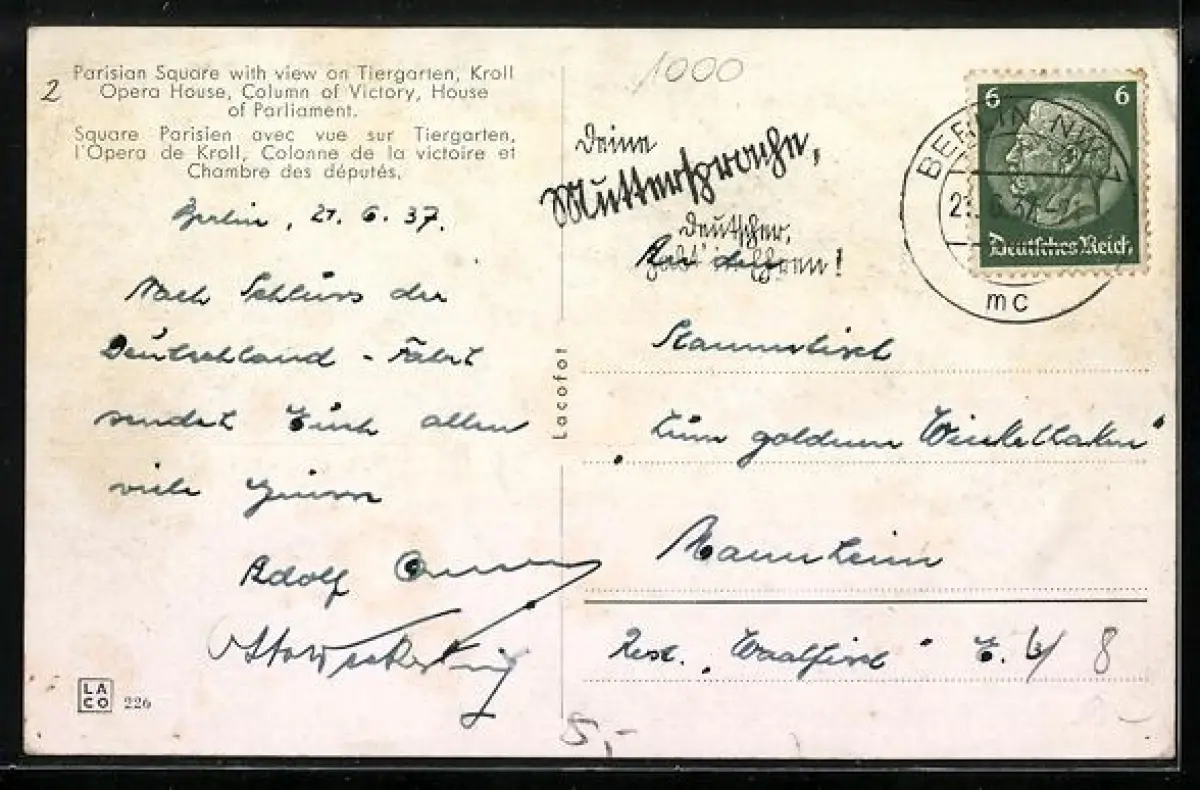 Parisian Square with view on Tiergarten, Kroll
Opera House, Column of Victory, House
of Parliament.
Square Parisien avec vue sur Tiergarten,
l'Opera de Kroll, Colonne de la victoire et
Chambre des députés.
2
Berlin, 21. 6. 37.
Nach Schluss der
Deutschland - Fahrt
sendet Euch allen
viele Grüsse
Adolf
Otto Weckerling
LACO 226
Lacofot
1000
Deine
Muttersprache,
Deutscher,
halt' in Ehren!
BERLIN NW 7
mc
6 6
Deutsches Reich
An den
Stammtisch
„Zum goldenen Winkelhaken"
Mannheim
Rest. „Waalfisch" E. 4/ 8
5,-